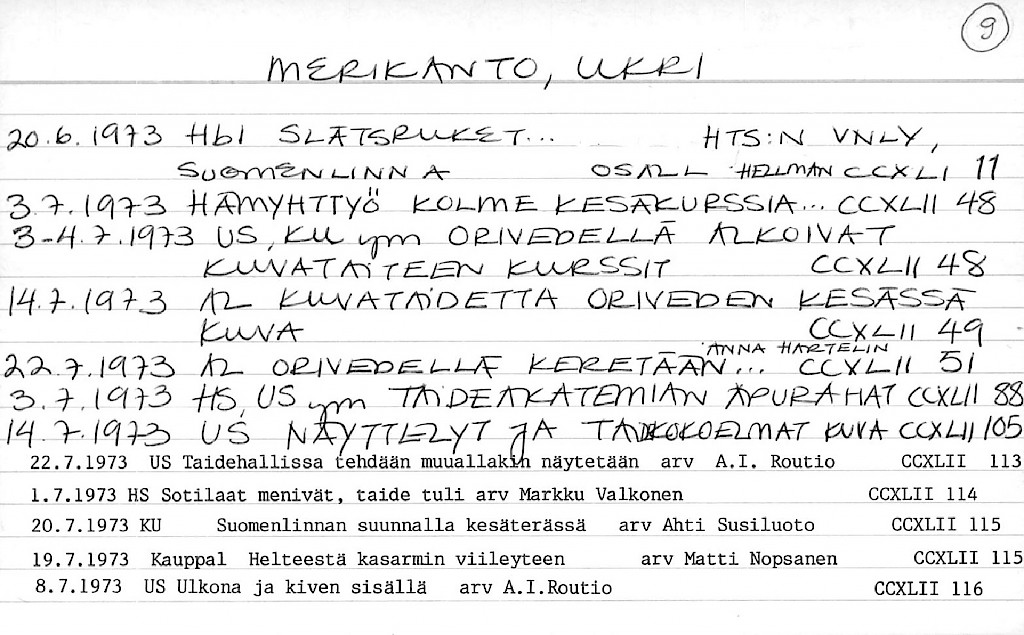 9
MERIKANTO, UKRI
20.6.1973 Hbl SLÄTSPUKET... HTS:N VNLY,
SUOMENLINNA OSALL HELLMAN CCXLI 11
3.7.1973 HÄMYHTTYÖ KOLME KESÄKURSSIA... CCXLII 48
3-4.7.1973 US, KU ym ORIVEDELLÄ ALKOIVAT
KUVATAITEEN KURSSIT CCXLII 48
14.7.1973 AL KUVATAIDETTA ORIVEDEN KESÄSSÄ
KUVA CCXLII 49
ANNA HARTELIN
22.7.1973 AL ORIVEDELLÄ KERETÄÄN... CCXLII 51
3.7.1973 HS, US ym TAIDEAKATEMIAN APURAHAT CCXLII 88
14.7.1973 US NÄYTTELYT JA TAIDEKOKOELMAT KUVA CCXLII 105
22.7.1973 US Taidehallissa tehdään muuallakin näytetään arv A.I. Routio CCXLII 113
1.7.1973 HS Sotilaat menivät, taide tuli arv Markku Valkonen CCXLII 114
20.7.1973 KU Suomenlinnan suunnalla kesäterässä arv Ahti Susiluoto CCXLII 115
19.7.1973 Kauppal Helteestä kasarmin viileyteen arv Matti Nopsanen CCXLII 115
8.7.1973 US Ulkona ja kiven sisällä arv A.I.Routio CCXLII 116